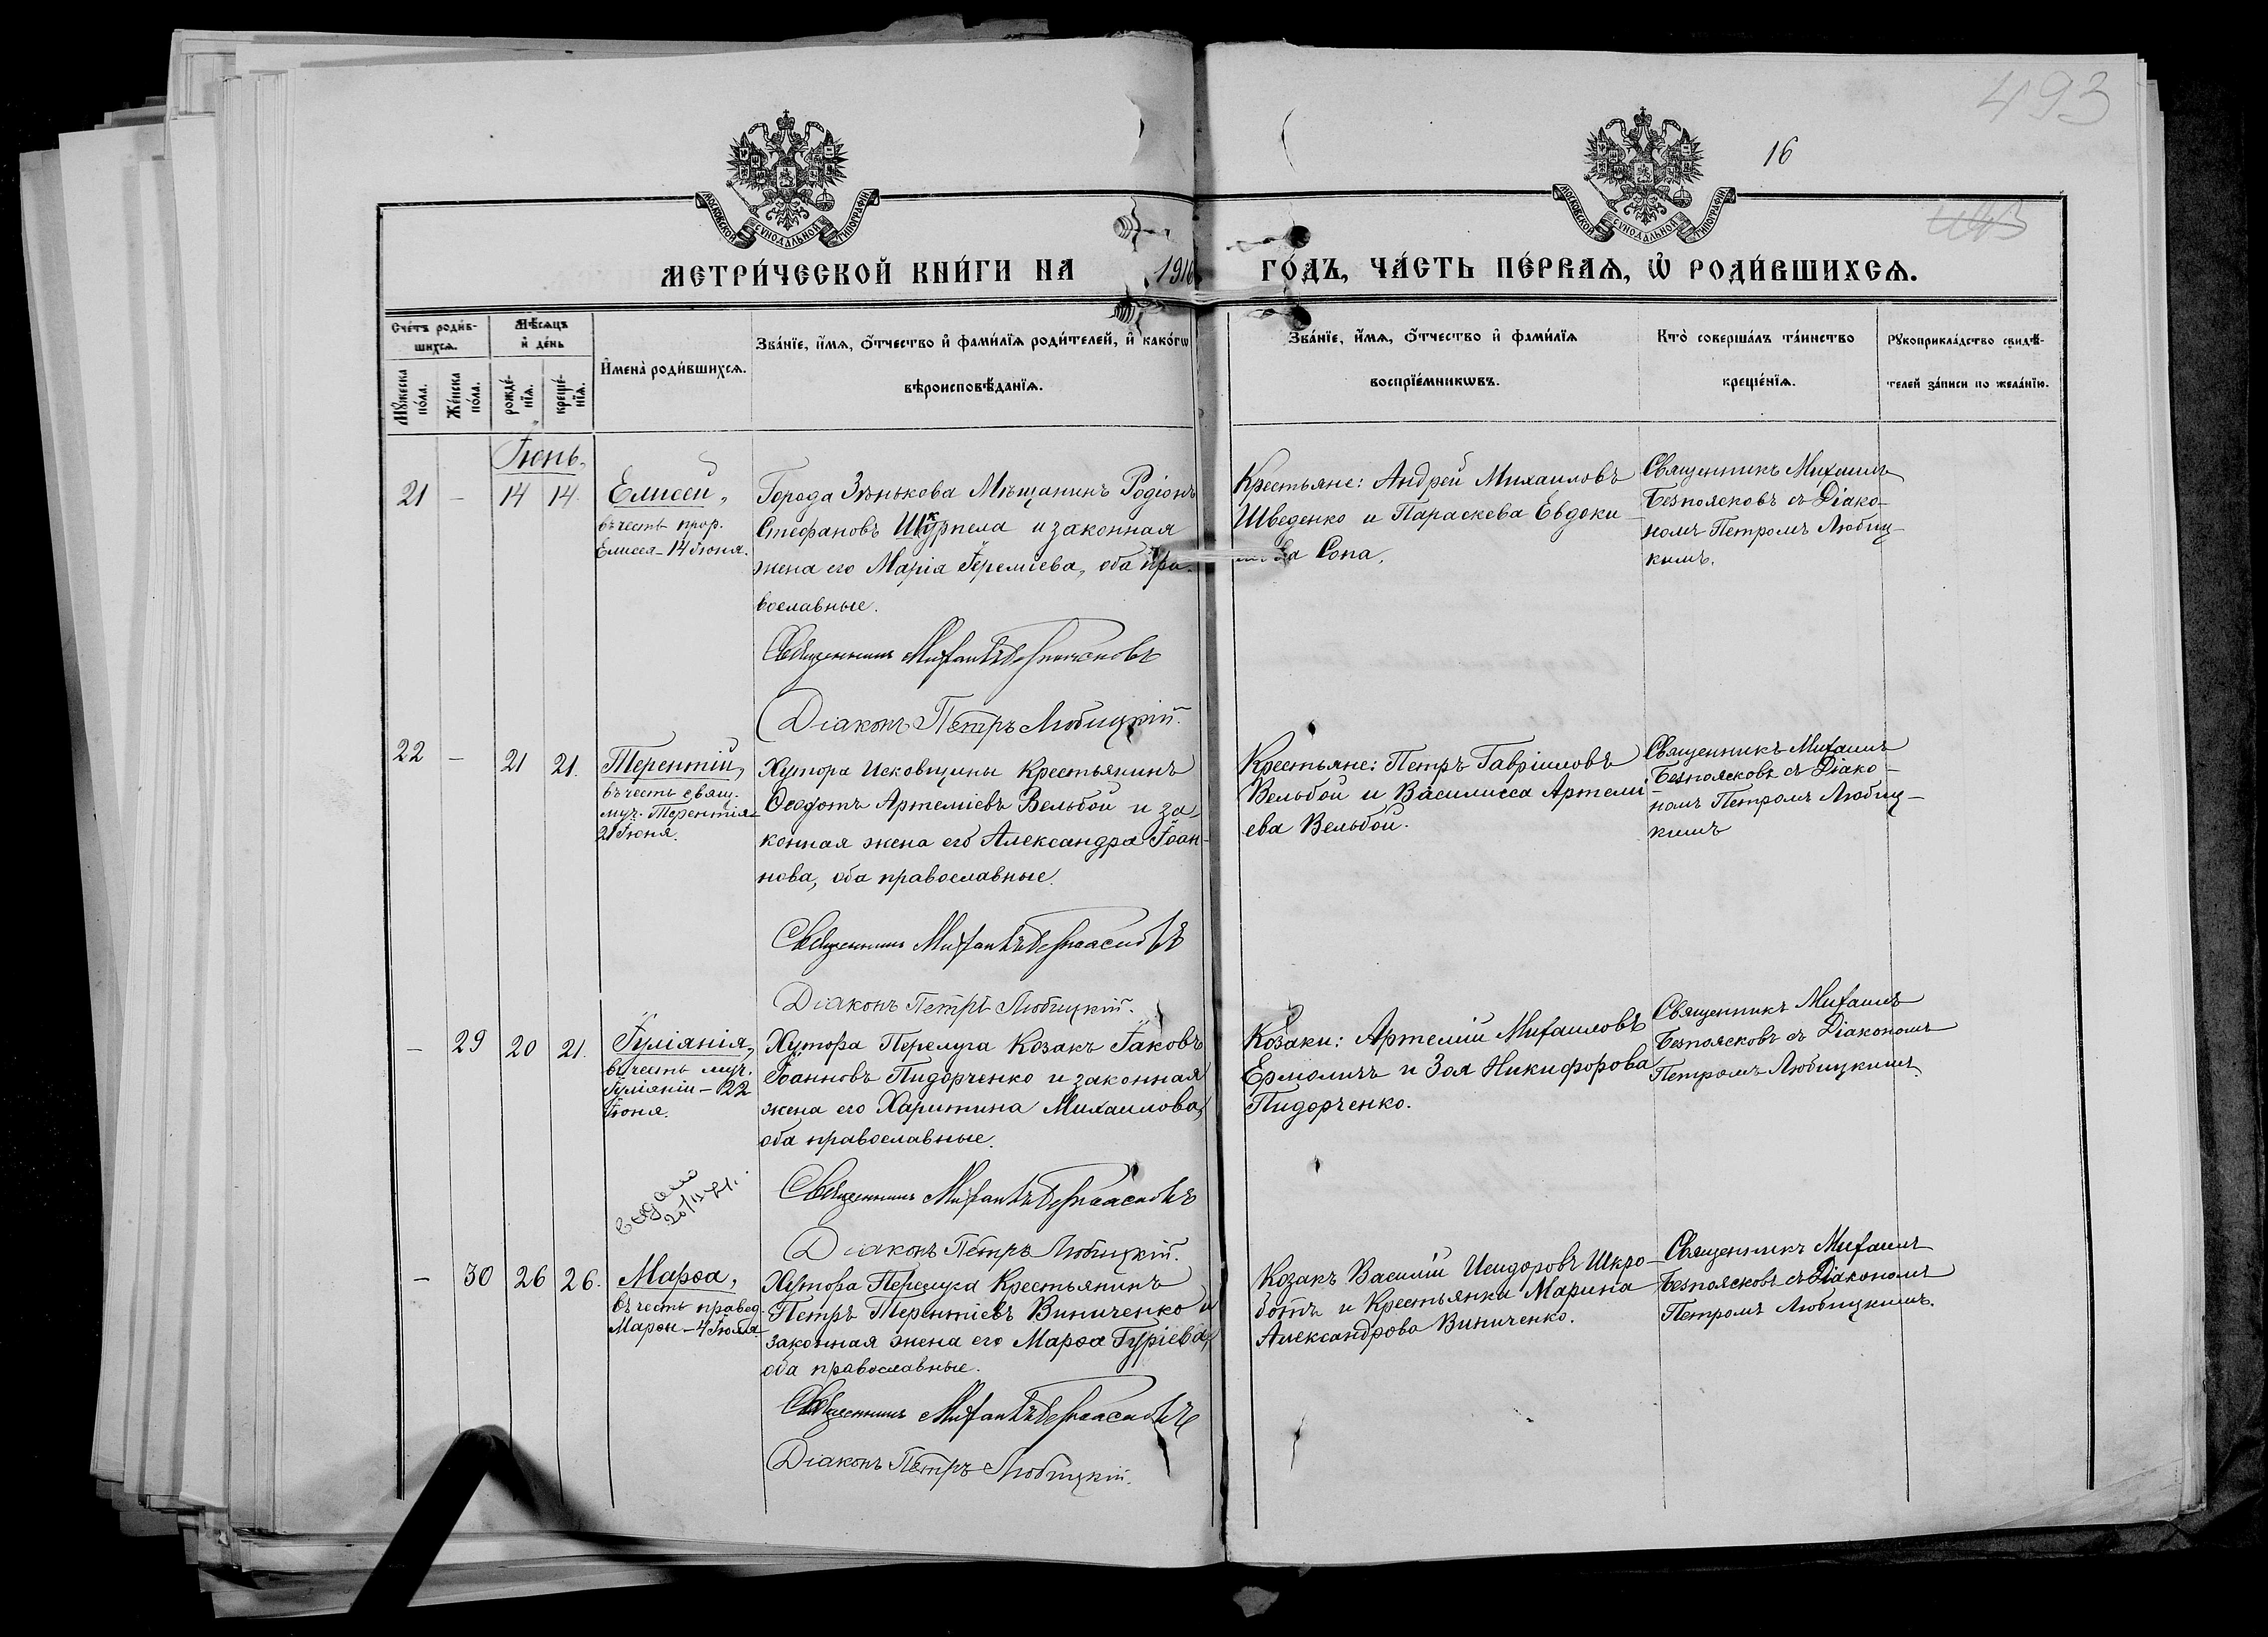 493
16
443
МОСКОВСКОЙ СѴНОДАЛЬНОЙ ТИПОГРАФІИ
МОСКОВСКОЙ СѴНОДАЛЬНОЙ ТИПОГРАФІИ
МЕТРИ́ЧЕСКОЙ КНИ́ГИ НА 1916 ГО́ДЪ, ЧА́СТЬ ПЕ́РВАѦ, Ѡ҆ РОДИ́ВШИХСѦ.
Сче́тъ роди́в-
шихсѧ.
Мꙋ́жеска
по́ла.
Же́нска
по́ла.
Мѣ́сѧцъ
и҆ де́нь
рожде́-
нїѧ.
креще́-
нїѧ.
И҆мена̀ роди́вшихсѧ.
Зва́нїе, и҆́мѧ, ѻ҆́тчество и҆ фами́лїѧ роди́телей, и҆ како́гѡ
вѣроисповѣ́данїѧ.
Зва́нїе, и҆́мѧ, ѻ҆́тчество и҆ фами́лїѧ
воспрїе́мникѡвъ.
Кто̀ соверша́лъ та́инство
креще́нїѧ.
Рꙋкоприкла́дство свидѣ́-
телей за́писи по жела́нїю.
Іюнь.
21 — 14 14.
Елисей,
въ честь прор.
Елисея – 14 Іюня.
Города Зѣнькова Мѣщанинъ Родіонъ
Стефановъ Шкурпела и законная
жена его Марія Іереміева, оба пра-
вославные.
Священникъ Михаилъ Безпоясковъ
Діаконъ Петръ Любицкій.
Крестьяне: Андрей Михаиловъ
Шведенко и Параскева Евдоки-
ва Сопа.
Священникъ Михаилъ
Безпоясковъ съ Діако-
номъ Петромъ Любиц-
кимъ.
22 — 21 21.
Терентій,
въ честь свящ.
муч. Терентія –
21 Іюня.
Хутора Исковщины Крестьянинъ
Ѳеодотъ Артеміевъ Вельбой и за-
конная жена его Александра Іоан-
нова, оба православные.
Священникъ Михаилъ Безпоясковъ
Діаконъ Петръ Любицкій.
Крестьяне: Петръ Гавріиловъ
Вельбой и Василисса Артемі-
ева Вельбой.
Священникъ Михаилъ
Безпоясковъ съ Діако-
номъ Петромъ Любиц-
кимъ
— 29 20 21.
Іуліанія,
въ честь муч.
Іуліаніи – 22
Іюня.
Хутора Перелуга Козакъ Іаковъ
Іоанновъ Пидорченко и законная
жена его Харитина Михаилова,
оба православные.
Священникъ Михаилъ Безпоясковъ
Діаконъ Петръ Любицкій.
Козаки: Артемій Михаиловъ
Ермоличъ и Зоя Никифорова
Пидорченко.
Священникъ Михаилъ
Безпоясковъ съ Діакономъ
Петромъ Любицкимъ.
— 30 26 26.
Марѳа,
въ честь правед.
Марѳы – 4 Іюля
Хутора Перелуга Крестьянинъ
Петръ Терентіевъ Виниченко и
законная жена его Марѳа Гуріева,
оба православные.
Священникъ Михаилъ Безпоясковъ
Діаконъ Петръ Любицкій.
Козакъ Василій Исидоровъ Шкро-
ботъ и Крестьянка Марина
Александрова Виниченко.
Священникъ Михаилъ
Безпоясковъ съ Діакономъ
Петромъ Любицкимъ.